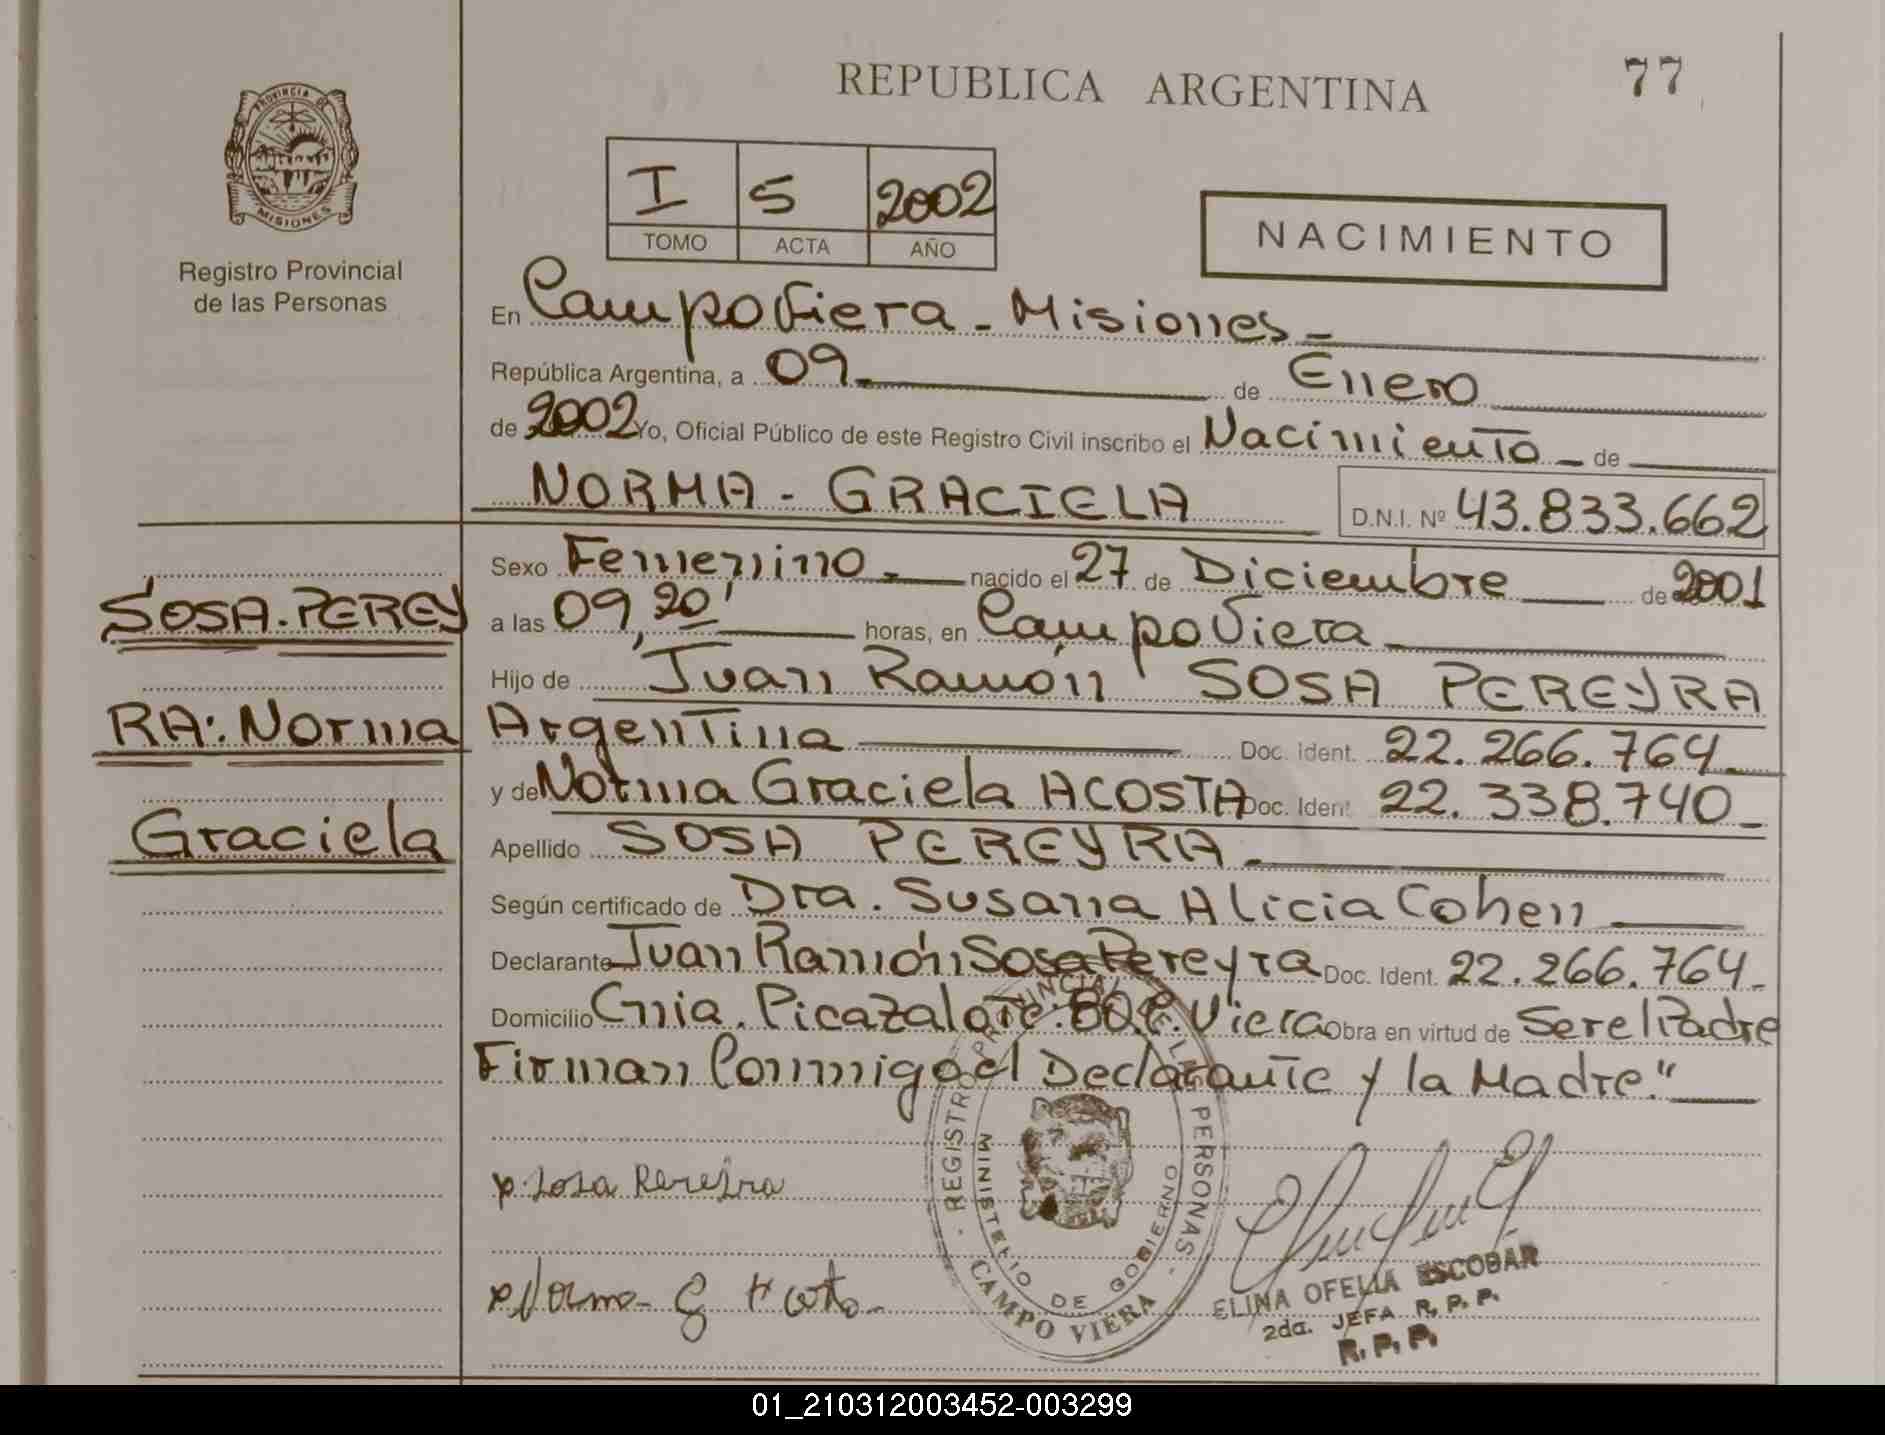 REPUBLICA ARGENTINA
77
PROVINCIA DE
MISIONES
Registro Provincial
de las Personas
I 5 2002
TOMO ACTA AÑO
NACIMIENTO
En Campo Viera - Misiones -
República Argentina, a 09 - de Enero
de 2002 Yo, Oficial Público de este Registro Civil inscribo el Nacimiento - de
NORMA - GRACIELA D.N.I. Nº 43.833.662
SOSA.PEREY
RA: Norma
Graciela
Sexo Femenino - nacido el 27 de Diciembre de 2001
a las 09,20' horas, en Campo Viera
Hijo de Juan Ramón SOSA PEREYRA
Argentina Doc. Ident. 22.266.764 -
y de Norma Graciela ACOSTA Doc. Ident. 22.338.740 -
Apellido SOSA PEREYRA -
Según certificado de Dra. Susana Alicia Cohen
Declarante Juan Ramón Sosa Pereyra Doc. Ident. 22.266.764 -
Domicilio Cnia. Picaza lote: 80. C. Viera Obra en virtud de Ser el Padre
Firman Conmigo el Declarante y la Madre."
REGISTRO PROVINCIAL DE LAS PERSONAS
MINISTERIO DE GOBIERNO
CAMPO VIERA
ELINA OFELIA ESCOBAR
2da. JEFA R. P. P.
R. P. P.
01_210312003452-003299